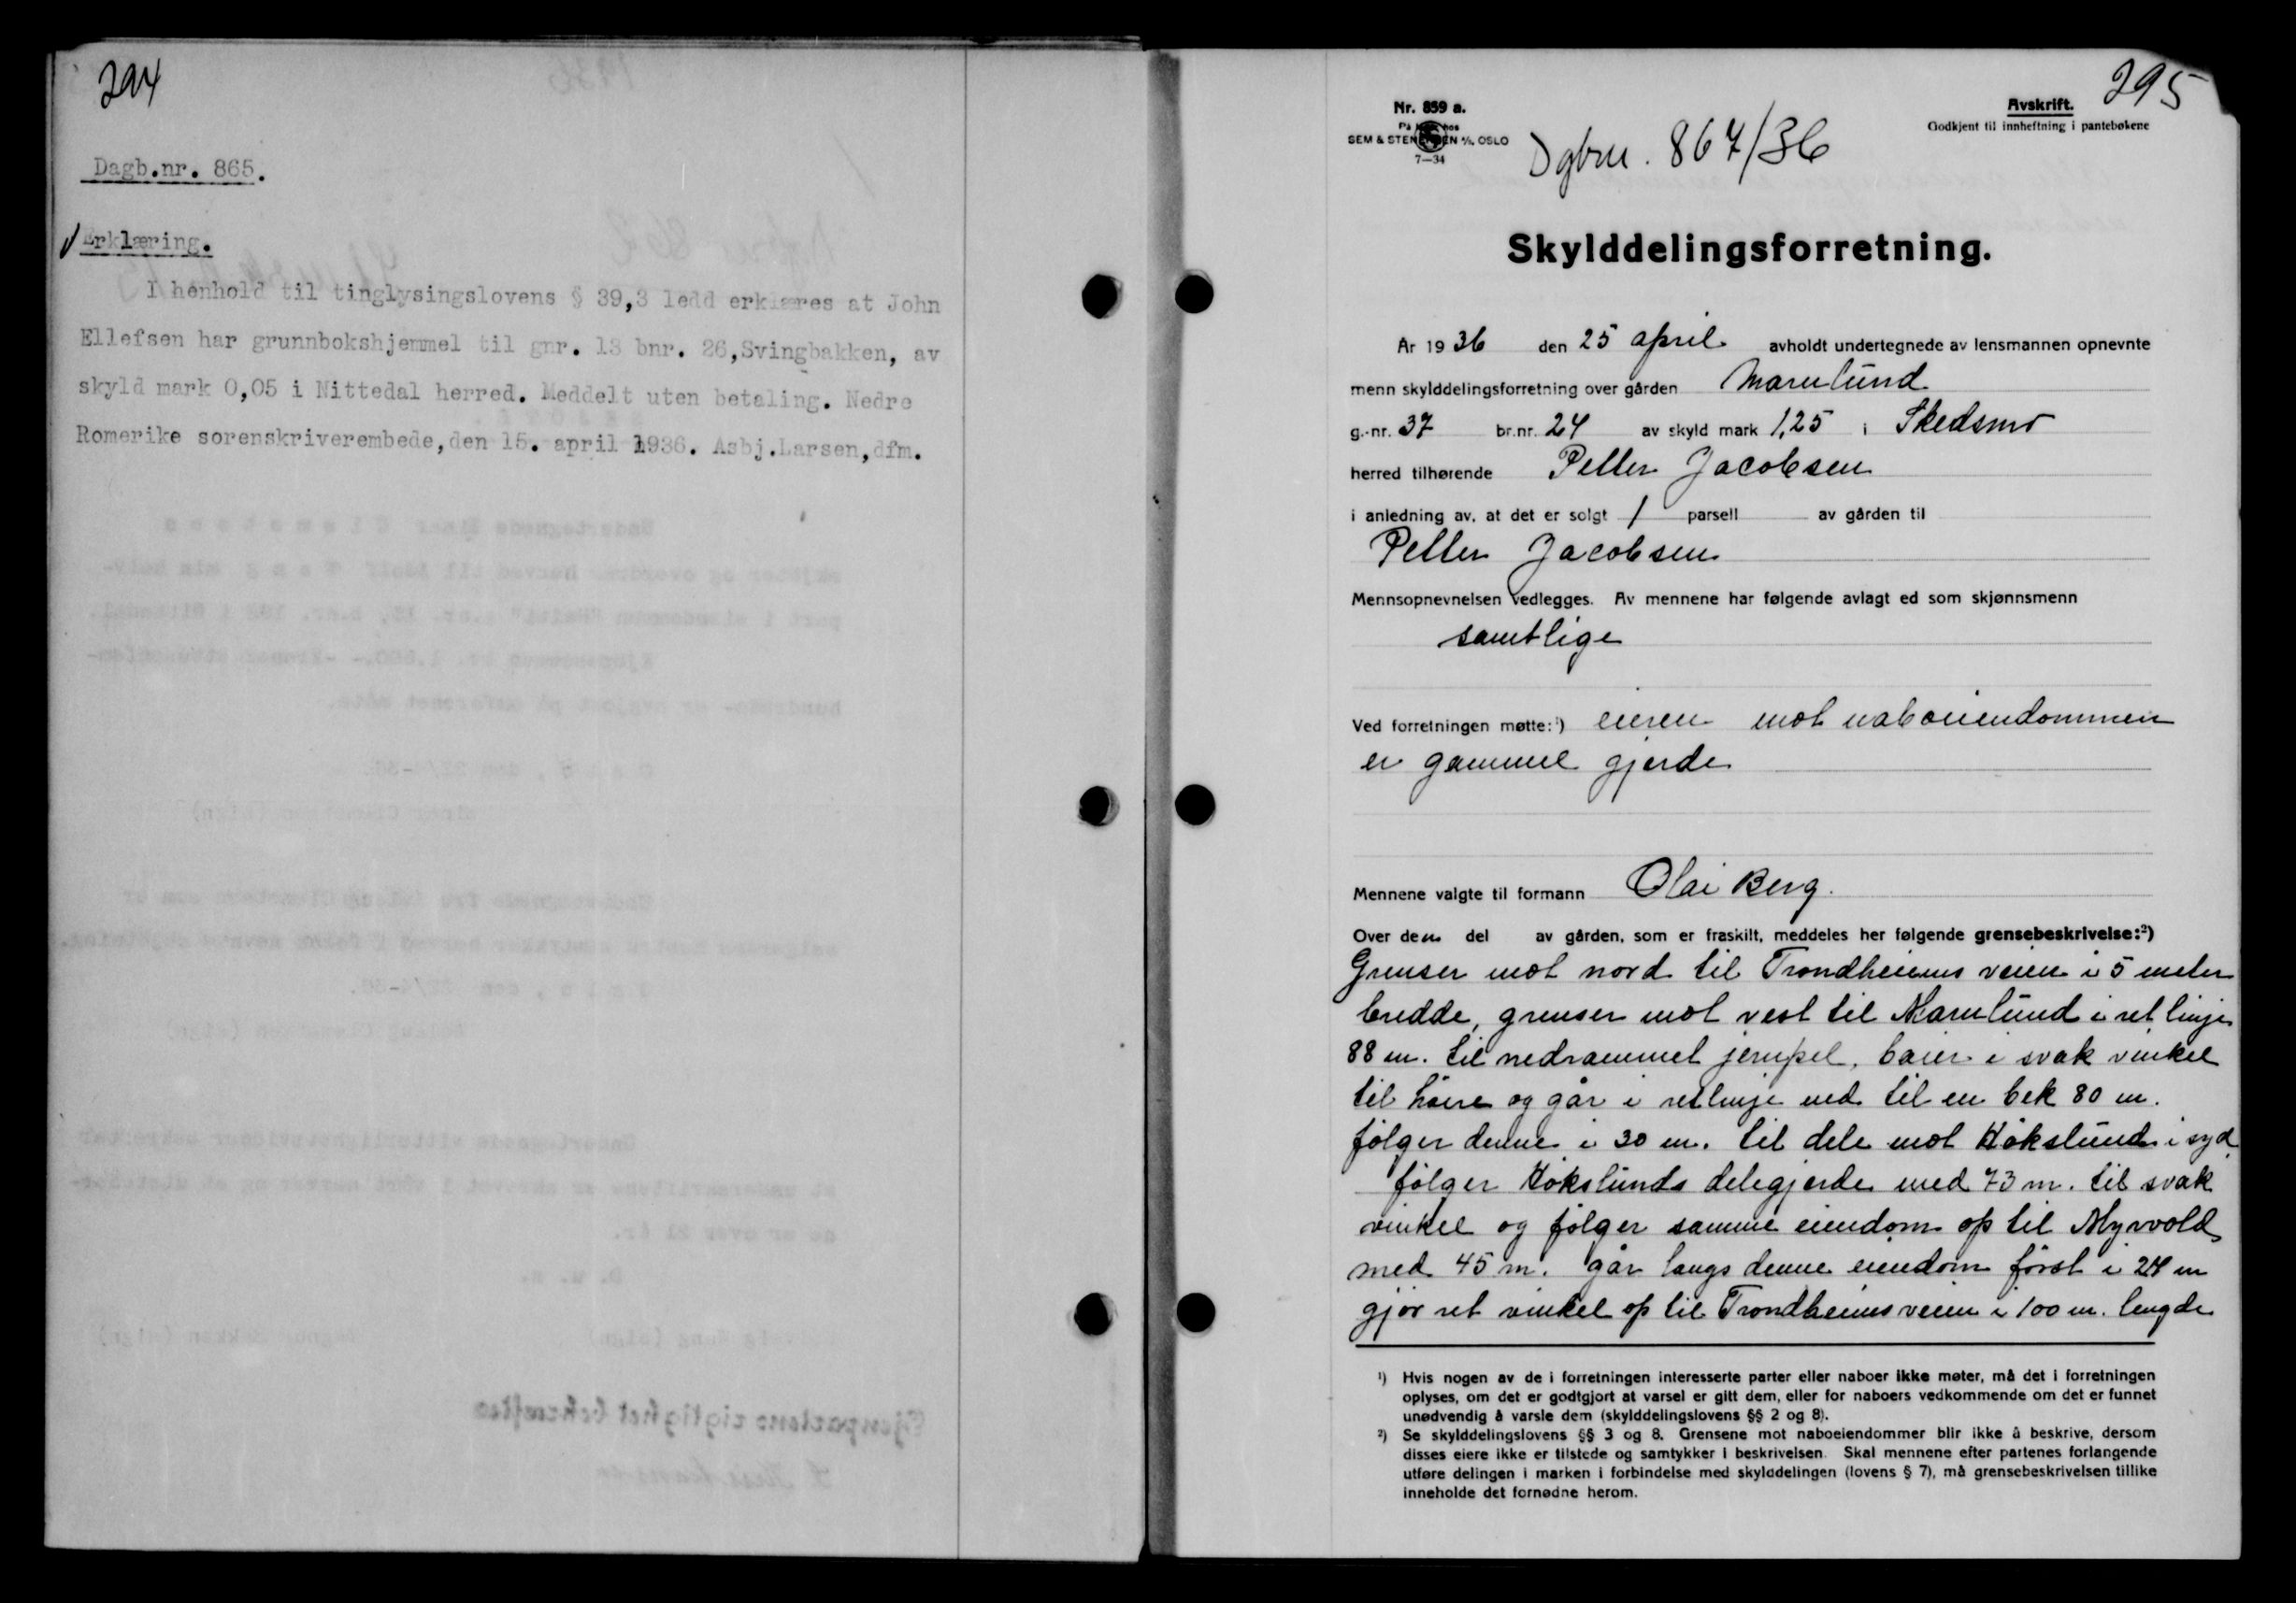 294
Dagb.nr. 865.
Erklæring.
I henhold til tinglysingslovens § 39,3 ledd erklæres at John
Ellefsen har grunnbokshjemmel til gnr. 13 bnr. 26, Svingbakken, av
skyld mark 0,05 i Nittedal herred. Meddelt uten betaling. Nedre
Romerike sorenskriverembede, den 15. april 1936. Asbj. Larsen, dfm.
295
Nr. 859 a.
Avskrift.
På hos
Godkjent til innheftning i pantebøkene
SEM & STENERSEN A/S, OSLO
7—34
Dgbnr. 867/36
Skylddelingsforretning.
År 1936 den 25 april avholdt undertegnede av lensmannen opnevnte
menn skylddelingsforretning over gården Marulund
g.-nr. 37 br.nr. 24 av skyld mark 1,25 i Skedsmo
herred tilhørende Petter Jacobsen
i anledning av, at det er solgt 1 parsell av gården til
Petter Jacobsen
Mennsopnevnelsen vedlegges. Av mennene har følgende avlagt ed som skjønnsmenn
samtlige
Ved forretningen møtte:¹) eieren mot naboeiendommen
er gammel gjerde
Mennene valgte til formann Olai Berg.
Over den del av gården, som er fraskilt, meddeles her følgende grensebeskrivelse:²)
Grenser mot nord til Trondheims veien i 5 meter
bredde, grenser mot vest til Marulund i ret linje
88 m. til nedrammet jernpel, baier i svak vinkel
til høire og går i retlinje ned til en bek 80 m.
følger denne i 30 m. til dele mot Høkslund i syd
følger Høkslunds delegjerde med 73 m. til svak
vinkel og følger samme eiendom op til Myrvold
med 45 m. går langs denne eiendom først i 24 m
gjør ret vinkel op til Trondheimsveien i 100 m. lengde
¹) Hvis nogen av de i forretningen interesserte parter eller naboer ikke møter, må det i forretningen
oplyses, om det er godtgjort at varsel er gitt dem, eller for naboers vedkommende om det er funnet
unødvendig å varsle dem (skylddelingslovens §§ 2 og 8).
²) Se skylddelingslovens §§ 3 og 8. Grensene mot naboeiendommer blir ikke å beskrive, dersom
disses eiere ikke er tilstede og samtykker i beskrivelsen. Skal mennene efter partenes forlangende
utføre delingen i marken i forbindelse med skylddelingen (lovens § 7), må grensebeskrivelsen tillike
inneholde det fornødne herom.